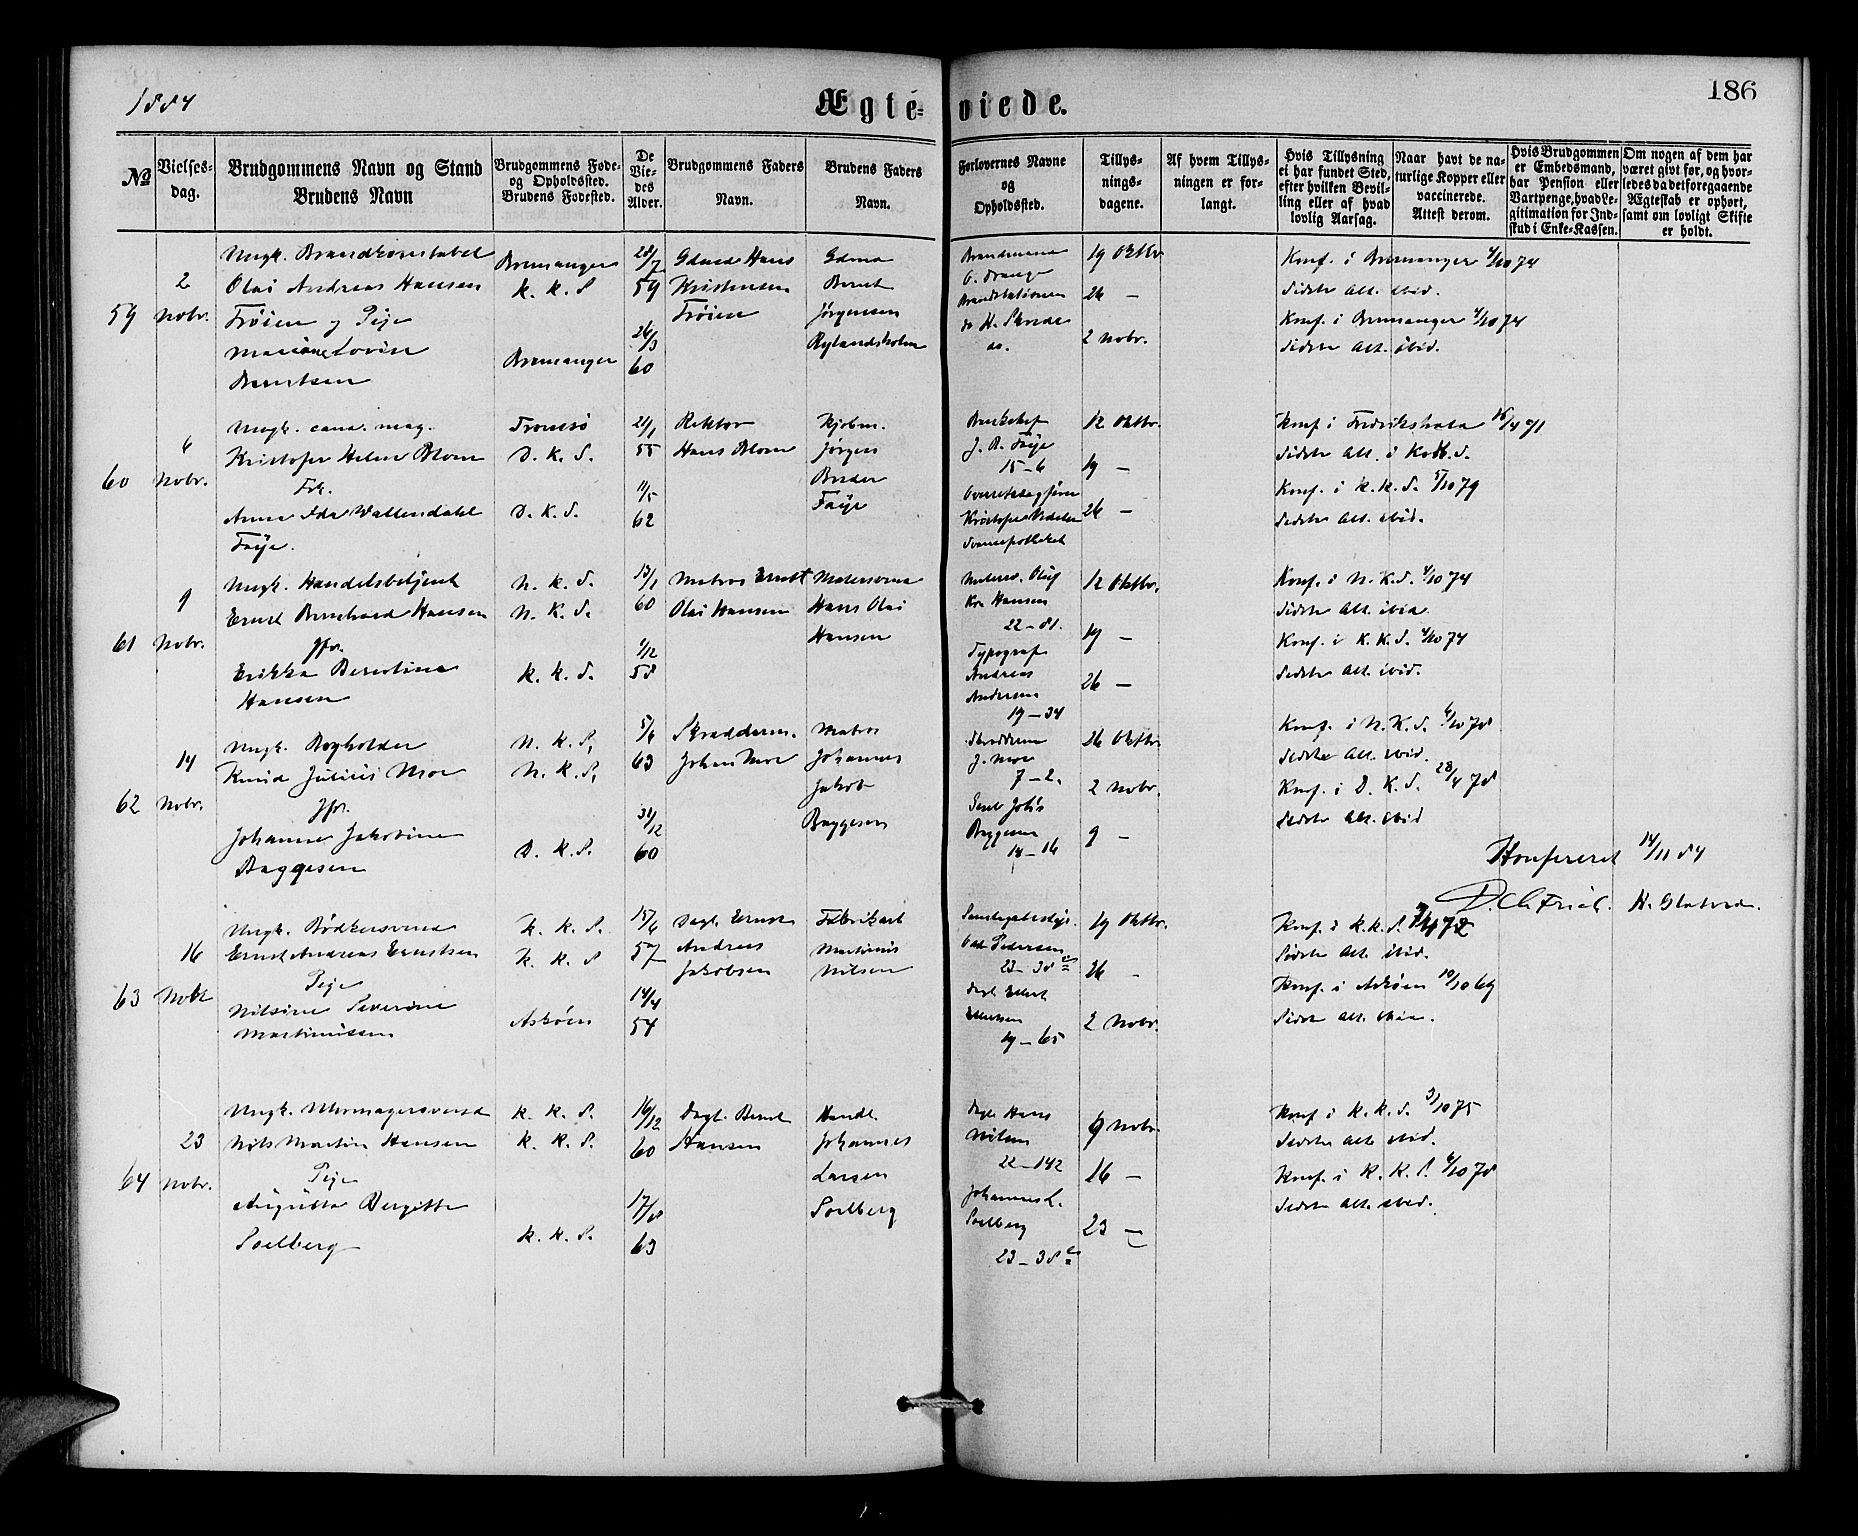 1884
Ægte-
viede.
186
№
Vielses-
dag.
Brudgommens Navn og Stand
Brudens Navn
Brudgommens Føde-
og Opholdssted.
Brudens Fødested.
De
Vie-
des
Alder.
Brudgommens Faders
Navn.
Brudens Faders
Navn.
Forlovernes Navne
og
Opholdssted.
Tillys-
nings-
dagene.
Af hvem Tillys-
ningen er for-
langt.
Hvis Tillysning
ei har fundet Sted,
efter hvilken Bevil-
ling eller af hvad
lovlig Aarsag.
Naar havt de na-
turlige Kopper eller
vaccinerede.
Attest derom.
Hvis Brudgommen
er Embedsmand,
har Pension eller
Vartpenge, hvad Le-
gitimation for Ind-
skud i Enke-Kassen.
Om nogen af dem har
været givt før, og hvor-
ledes da det foregaaende
Ægteskab er ophørt,
samt om lovligt Skifte
er holdt.
59
2
Nobr.
Ungk. Brandkonstabel
Olai Andreas Hansen
Frøien og Pige
Mariane Lovise
Berntsen
Bremanger
K. K. S
Bremanger
28/7
59
26/3
60
Gdmd Hans
Kristensen
Frøien
Gdmd
Bernt
Jørgensen
Rylandsholm
Brandmand
Brandstationen
do H. Skrede
do.
19 Oktbr
26 —
2 Nobr.
Konf. i Bremanger 4/10 74
Sidste Alt. ibid.
Konf. i Bremanger 4/10 74
Sidste Alt. ibid.
60
6
Nobr.
Ungk. cand. mag.
Kristofer Helm Blom
Frk.
Anna Ida Wallendahl
Faye.
Tromsø
D. K. S.
D. K. S.
21/1
55
11/5
62
Rektor
Hans Blom
Kjøbm.
Jørgen
Breder
Faye
Bankchef
J. B. Faye
15 - 6
Overretssagfører
Svaneapotheket
12 Oktbr.
19 —
26 —
Konf. i Fredrikshald 16/4 71
Sidste Alt. i Korsk.
Konf. i K. K. S. 5/10 79
Sidste Alt. ibid.
61
9
Nobr.
Ungk. Handelsbetjent
Ernst Bernhard Hansen
Jfr.
Erikka Berentine
Hansen
N. K. S.
N. K. S.
K. K. S.
13/1
60
1/12
58
Matros Ernst
Olai Hansen
Malersvend
Hans Olai
Hansen
Materos. Oluf
Kr. Hansen
22 - 81.
Typograf
Andreas
Andersen
19 - 34
12 Oktbr.
19 —
26 —
Konf. i N. K. S. 4/10 74
Sidste Alt. ibid.
Konf. i K. K. S. 4/10 74
Sidste Alt. ibid.
62
14
Nobr.
Ungk. Bogholder
Knud Julius Moe
Jfr.
Johanne Jakobine
Baggesen
N. K. S.
N. K. S.
D. K. S.
5/6
63
31/12
60
Skrædderm.
Johan Moe
Matros
Johannes
Jakob
Baggesen
Skrædderm
J. Moe
7 - 2.
Baggesen
14 - 16
26 Oktbr.
2 Nobr.
9 —
Konf. i N. K. S. 6/10 78
Sidste Alt. ibid.
Konf. i D. K. S. 28/4 78
Sidste Alt. ibid
Konfereret 14/11 84
D. C. Friel. H. Gladved.
63
16
Nobr
Ungk. Bødkersvend
Ernst Andreas Ernstsen
Pige
Nilsine Severine
Martinussen
K. K. S.
K. K. S
Askøen
15/6
57
14/4
54
Dagl. Ernst
Andreas
Jakobsen
Fabrikarb
Martinus
Nilsen
Pedersen
23 - 38
Dagl Ellert
Ellertsen
19 - 65
19 Oktbr.
26 -
2 Nobr.
Konf. i K. K. S. 7/4 72
Sidste Alt. ibid.
Konf. i Askøen 10/10 69
Sidste Alt. ibid.
64
23
Nobr.
Ungk. Uhrmagersvend
Nils Martin Hansen
Pige
Augusta Bergitte
Soelberg
K. K. S.
K. K. S.
K. K. S.
16/12
60
17/8
63
Dagl. Bernt
Hansen
Handl.
Johannes
Larsen
Soelberg
Dagl Hans
Nilsen
22 - 142
Johannes L.
Soelberg
23 - 38
9 Nobr.
16 —
23 —
Konf. i K. K. S. 3/10 75
Sidste Alt. ibid.
Konf. i K. K. S. 6/10 78
Sidste Alt. ibid.